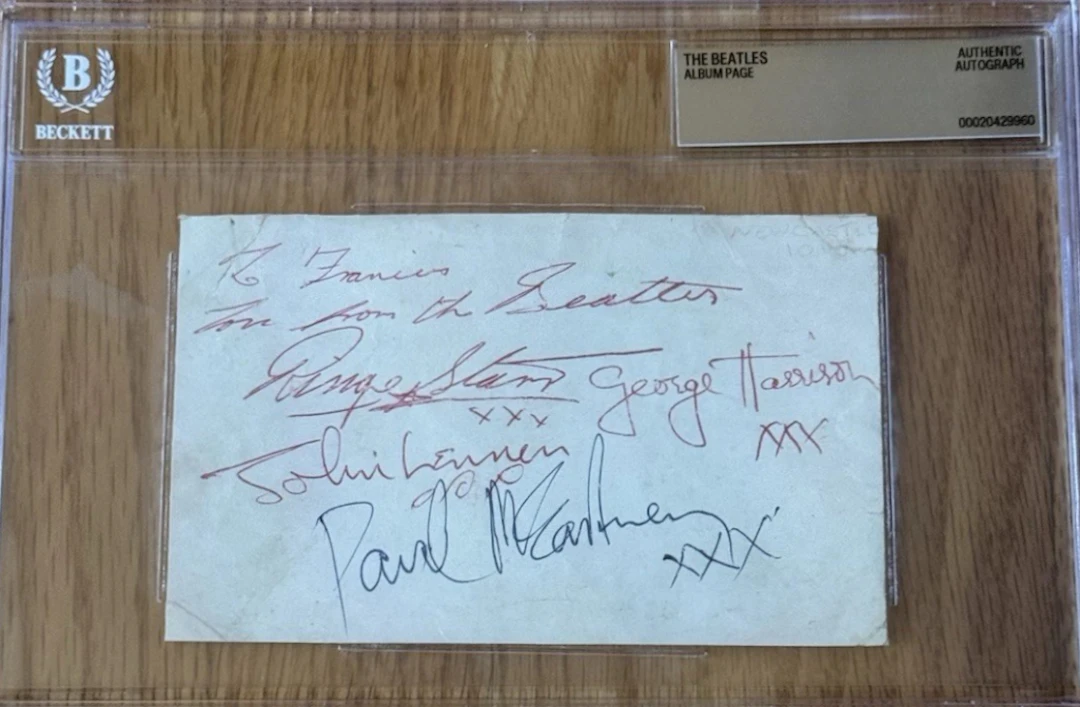 B
BECKETT
THE BEATLES
ALBUM PAGE
AUTHENTIC
AUTOGRAPH
00020429960
NEWCASTLE
To Francis
love from the Beatles
Ringo Starr
xxx
George Harrison
xxx
John Lennon
Paul McCartney
xxx